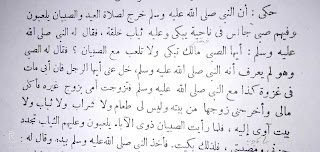 حكى : أن النبي صلى الله عليه وسلم خرج لصلاة العيد والصبيان يلعبون
وفيهم صبي جالس في ناحية يبكي وعليه ثياب خلقة ، فقال له النبي صلى الله
عليه وسلم : أيها الصبي مالك تبكي ولا تلعب مع الصبيان ؟ فقال له الصبي
وهو لم يعرف أنه النبي صلى الله عليه وسلم، خل عني أيها الرجل فان أبي مات
في غزوة كذا مع النبي صلى الله عليه وسلم فتزوجت أمي بزوج غيره فأكل
مالي وأخرجني زوجها من بيته وليس لي طعام ولا شراب ولا ثياب ولا
بيت آوي إليه ، فلما رأيت الصبيان ذوى الآباء يلعبون وعليهم الثياب تجدد
، فلذلك بكيت. فأخذ النبي صلى الله عليه وسلم بيده وقال له :